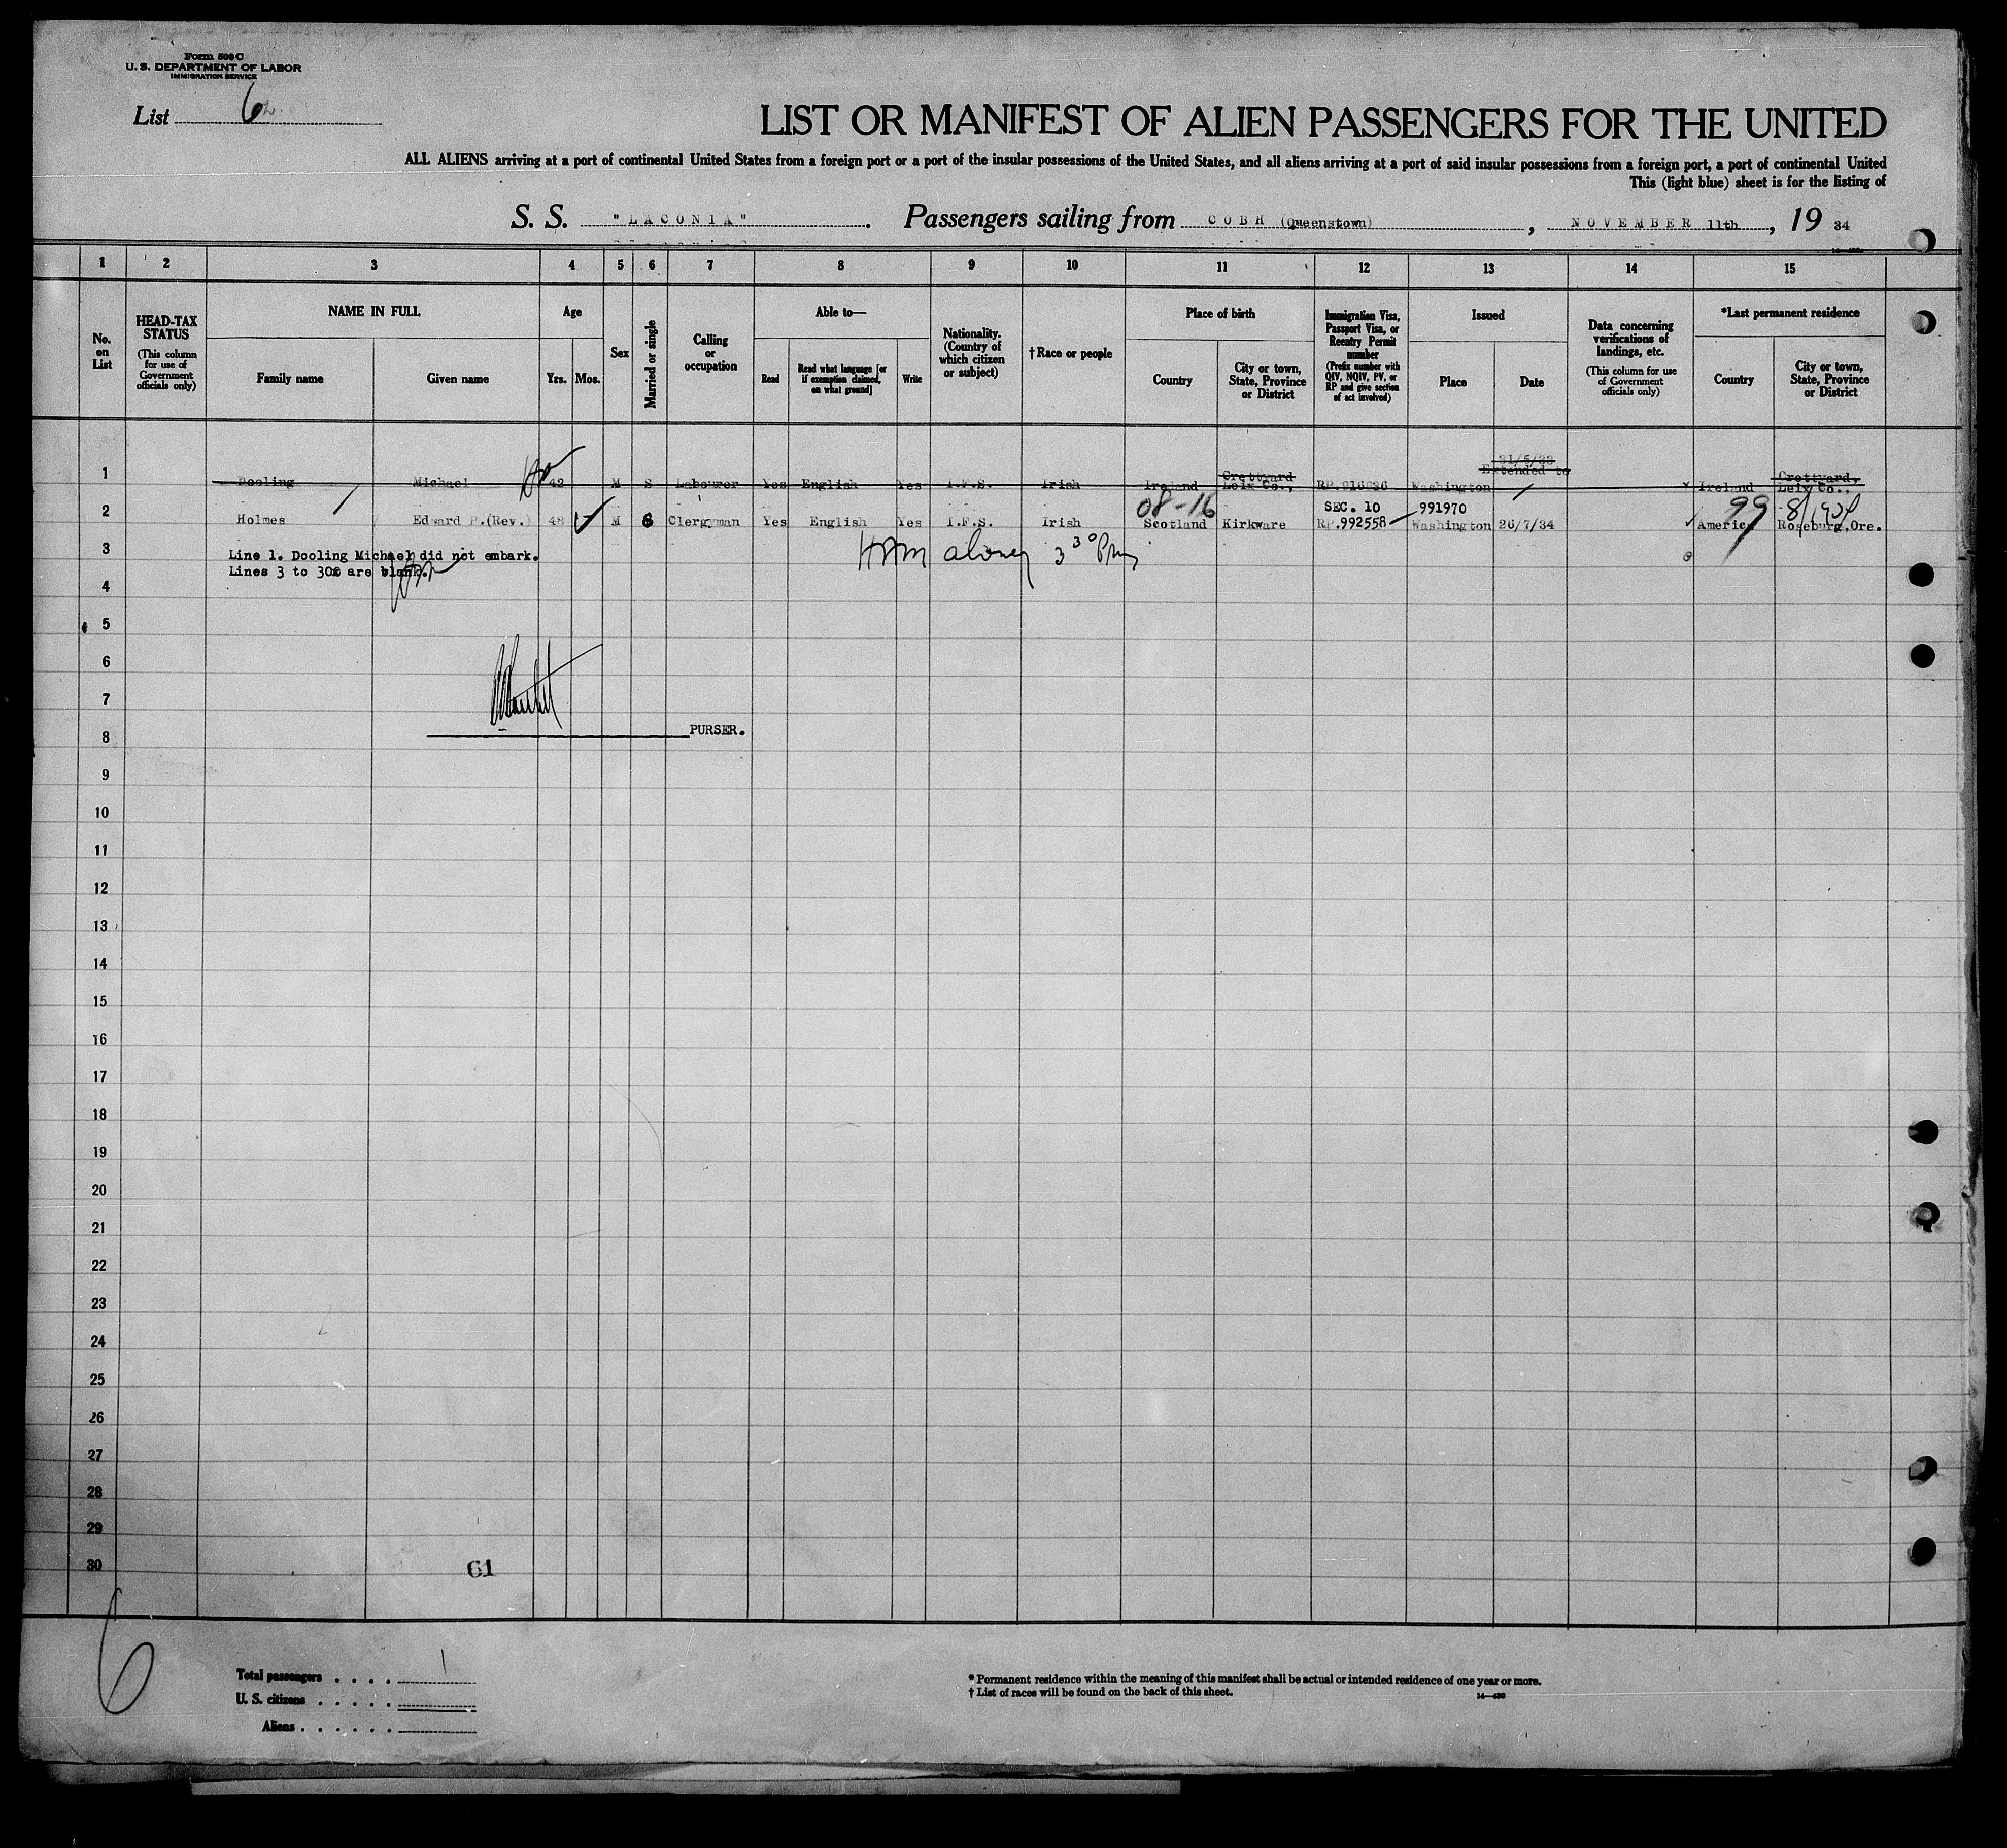 Form 500 C
U. S. DEPARTMENT OF LABOR
IMMIGRATION SERVICE
List 6
LIST OR MANIFEST OF ALIEN PASSENGERS FOR THE UNITED
ALL ALIENS arriving at a port of continental United States from a foreign port or a port of the insular possessions of the United States, and all aliens arriving at a port of said insular possessions from a foreign port, a port of continental United
This (light blue) sheet is for the listing of
S. S. "LACONIA". Passengers sailing from COBH (Queenstown), NOVEMBER 11th, 19 34
1 2 3 4 5 6 7 8 9 10 11 12 13 14 15
No. on List
HEAD-TAX STATUS
(This column for use of Government officials only)
NAME IN FULL
Family name
Given name
Age
Yrs. Mos.
Sex
Married or single
Calling or occupation
Able to—
Read
Read what language [or if exemption claimed, on what ground]
Write
Nationality. (Country of which citizen or subject)
† Race or people
Place of birth
Country
City or town, State, Province or District
Immigration Visa, Passport Visa, or Reentry Permit number
(Prefix number with QIV, NQIV, PV, or RP and give section of act involved)
Issued
Place
Date
Data concerning verifications of landings, etc.
(This column for use of Government officials only)
*Last permanent residence
Country
City or town, State, Province or District
31/5/33
Extended to
Crettyard Crettyard,
1 Dooling Michael 42 M S Labourer Yes English Yes I.F.S. Irish Ireland Leix Co., RP.916836 Washington Ireland Leix Co.,
08-16 SEC. 10 991970 99
2 Holmes Edward P.(Rev.) 48 M S Clergyman Yes English Yes I.F.S. Irish Scotland Kirkware RP.992558 Washington 26/7/34 America Roseburg,Ore.
3 Line 1. Dooling Michael did not embark.
alone 3 30 Pm
Lines 3 to 30 are blank.
4
5
6
7
PURSER.
8
9
10
11
12
13
14
15
16
17
18
19
20
21
22
23
24
25
26
27
28
29
30
61
6
Total passengers . . . . 1
U. S. citizens . . . . .
Aliens . . . . . .
* Permanent residence within the meaning of this manifest shall be actual or intended residence of one year or more.
† List of races will be found on the back of this sheet.
14—430